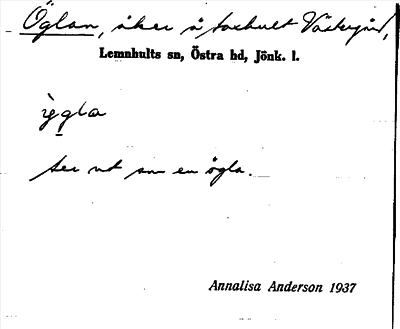 Öglan, åker å Boxhult Västergård,
Lemnhults sn, Östra hd, Jönk. l.
ỳgla
ser ut som en ögla.
Annalisa Anderson 1937